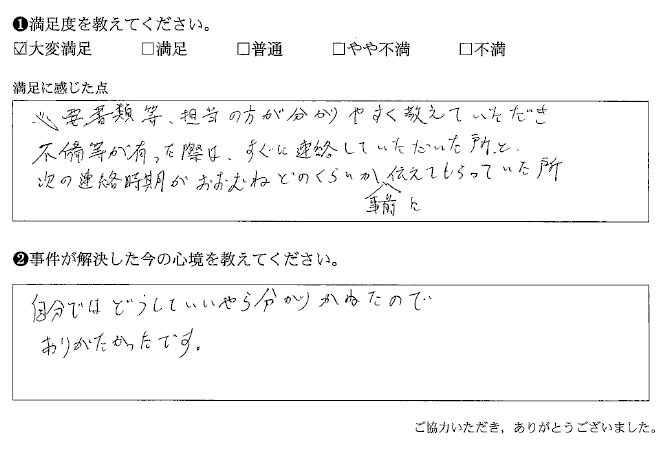 ❶満足度を教えてください。
☑大変満足 □満足 □普通 □やや不満 □不満
満足に感じた点
必要書類等、担当の方が分かりやすく教えていただき
不備等が有った際は、すぐに連絡していただいた所と、
次の連絡時期がおおむねどのくらいか伝えてもらっていた所
事前に
❷事件が解決した今の心境を教えてください。
自分ではどうしていいやら分かりかねたので
ありがたかったです。
ご協力いただき，ありがとうございました。